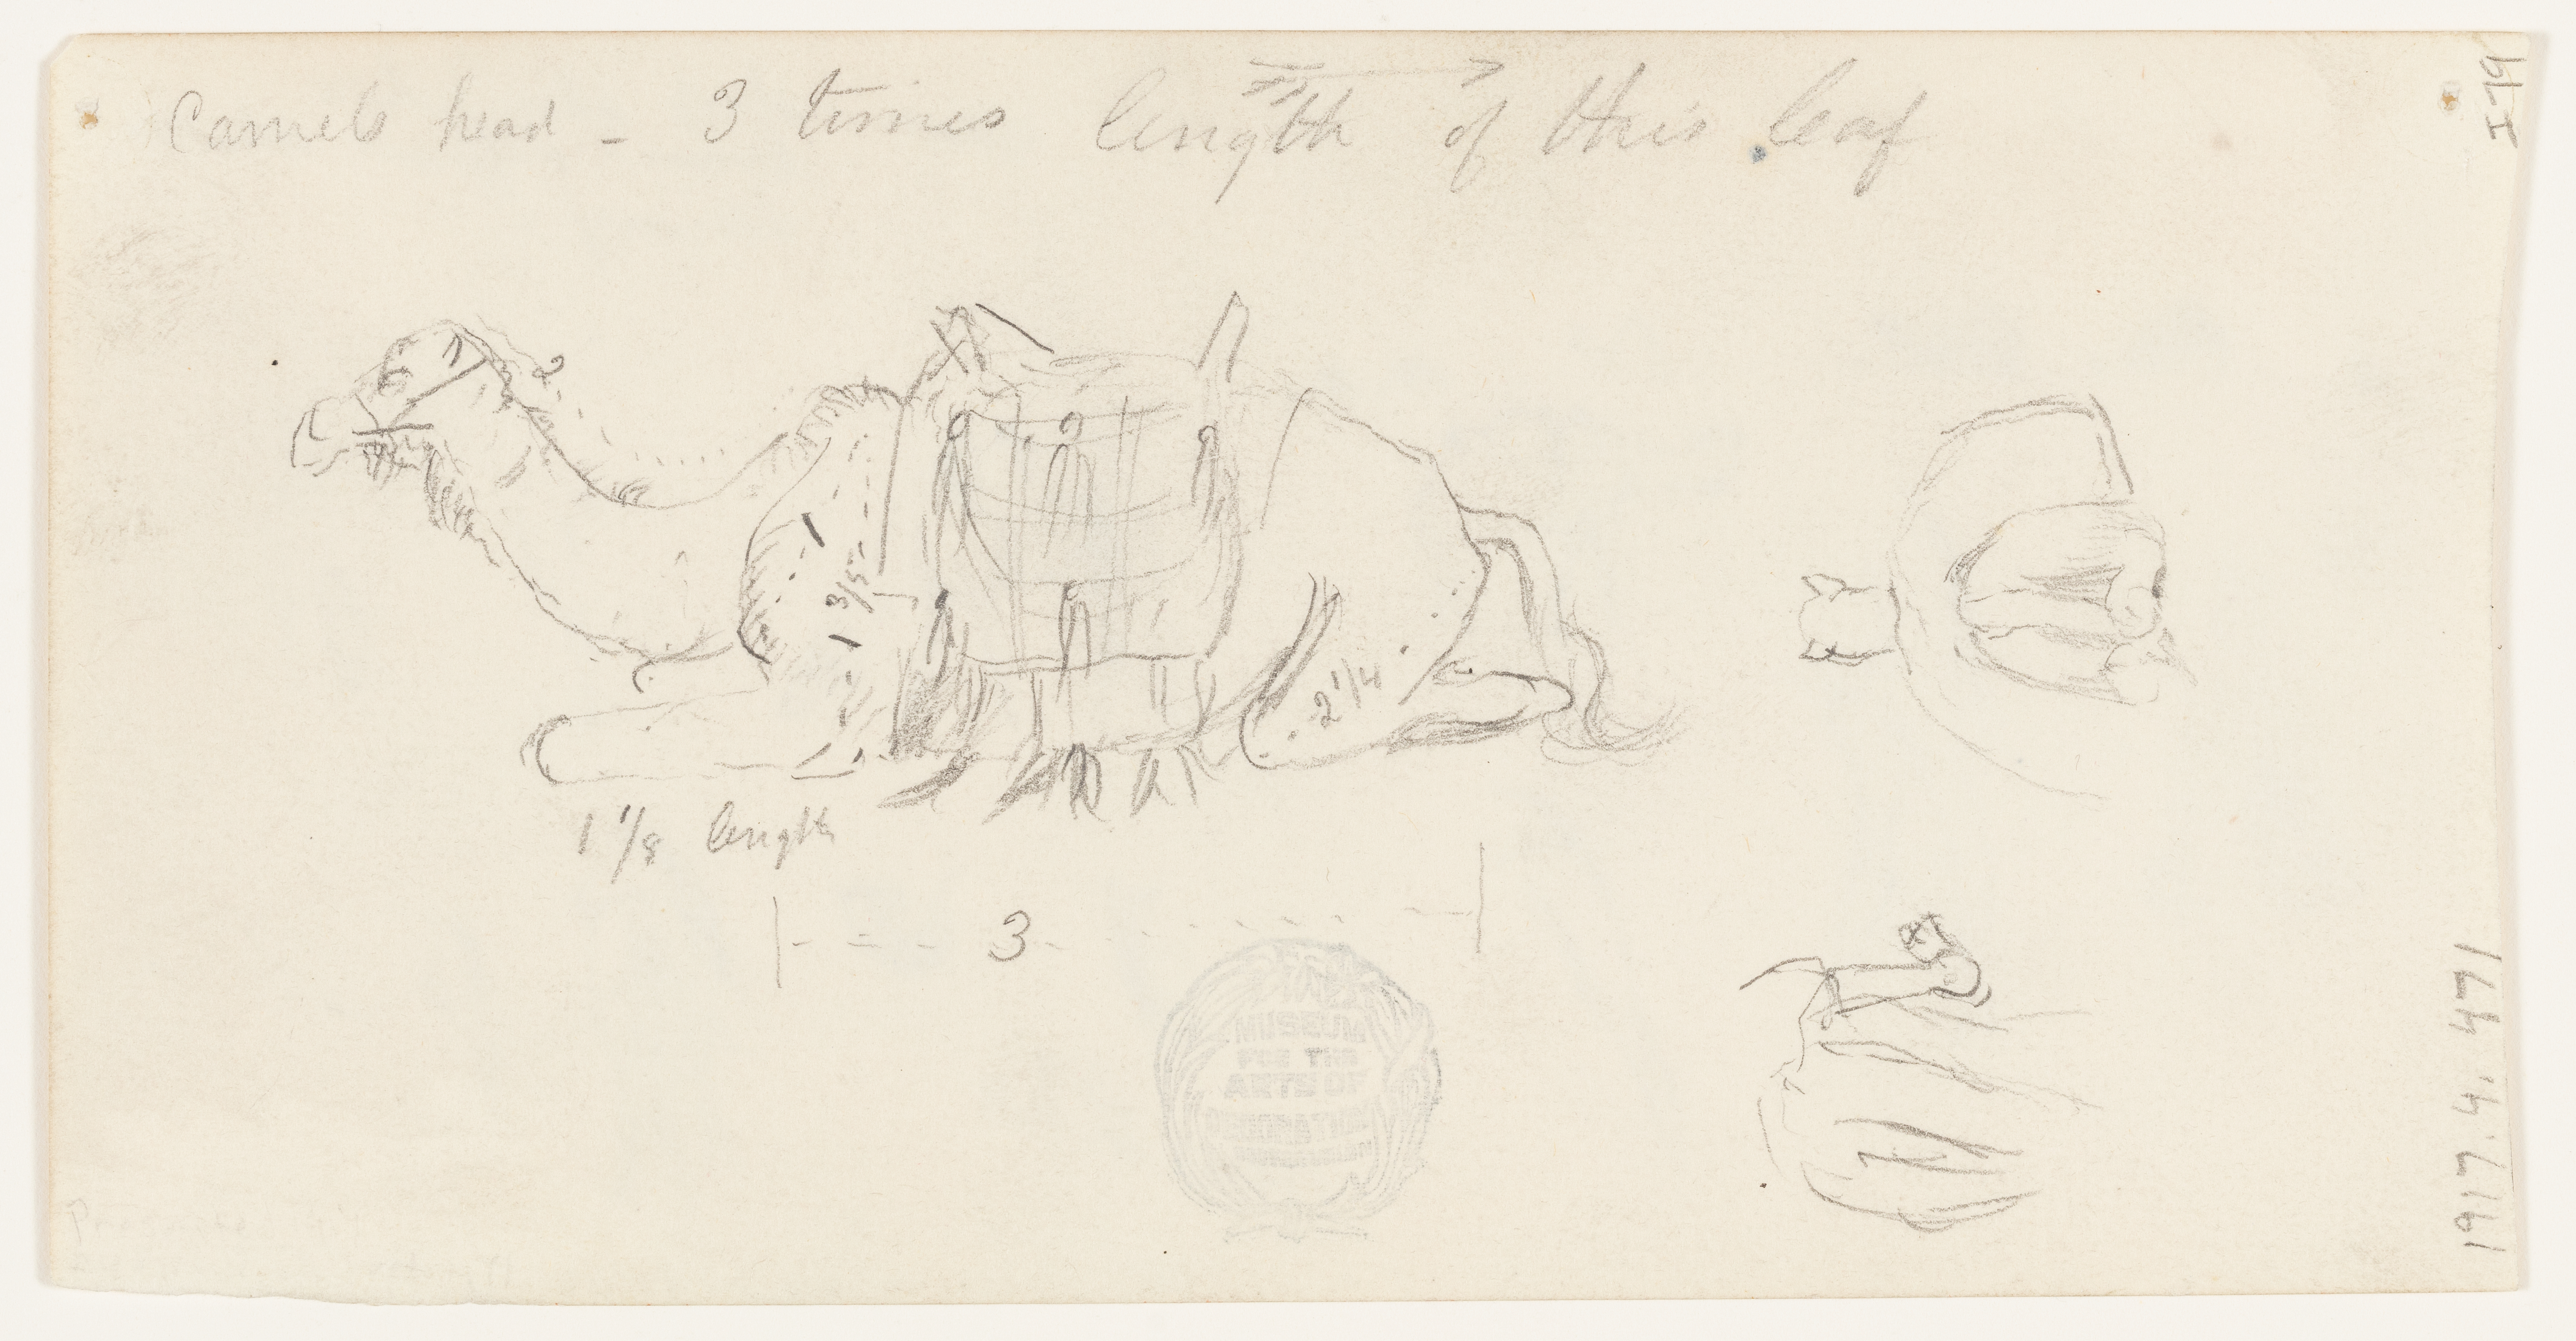 Camels head - 3 times length of this leaf
I79
2
1 3/5
2 1/4
1 1/8 length
3
MUSEUM
FOR THE
ARTS OF
DECORATION
1917.4.471